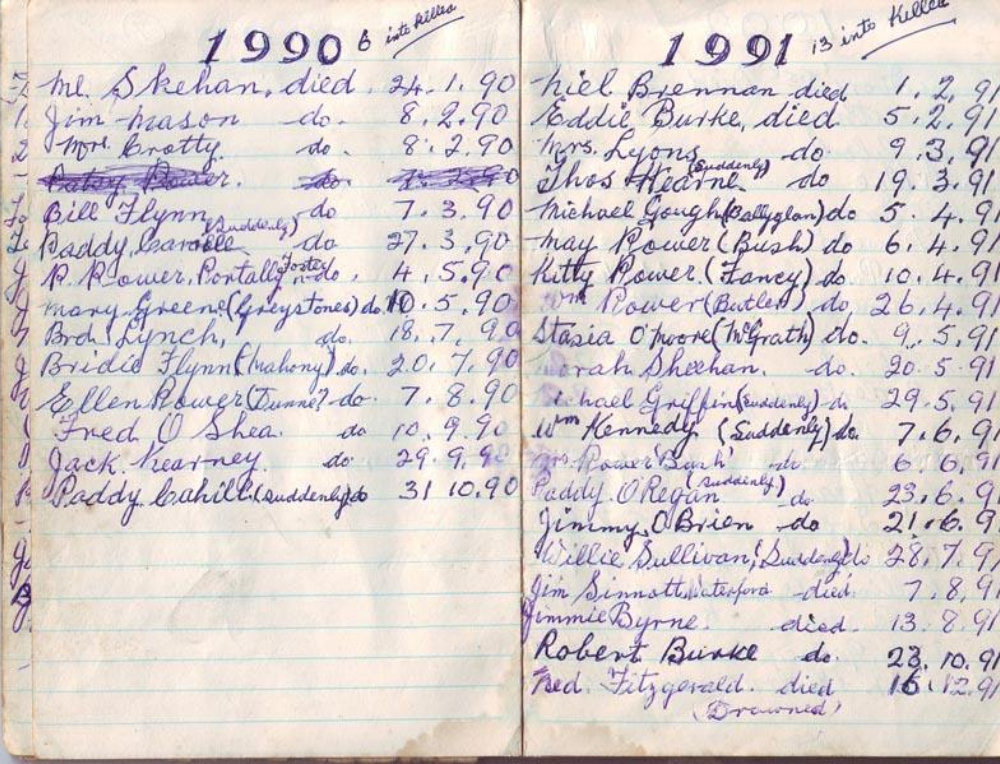 1990 6 into Killea
Ml. Skehan, died. 24.1.90
Jim Mason do. 8.2.90
Mrs. Crotty. do. 8.2.90
Patsy Power. do.
Bill Flynn do 7.3.90
Paddy (Suddenly) do 27.3.90
P. Power. Portally Foster do. 4.5.90
Mary Greene (Greystones) do. 10.5.90
Brd Lynch, do. 18.7.90
Bridie Flynn (Mahony) do. 20.7.90
Ellen Power (Dunne) do. 7.8.90
Fred O Shea. do 10.9.90
Jack Kearney. do 29.9.90
Paddy Cahill. (Suddenly) do 31 10.90
1991 13 into Killea
Niel Brennan died 1.2.91
Eddie Burke, died 5.2.91
Mrs. Lyons do. 9.3.91
Thos Hearne (Suddenly) do 19.3.91
Michael Gough (Ballyglan) do 5.4.91
May Power (Bush) do 6.4.91
Kitty Power. (Fancy) do. 10.4.91
Wm Power (Butler) do, 26.4.91
Stasia O'Moore (McGrath) do. 9.5.91
Norah Sheehan. do. 20.5.91
Michael Griffin (Suddenly) do 29.5.91
Wm Kennedy (Suddenly) do. 7.6.91
Mrs. Power 'Bush' do 6.6.91
Paddy O'Regan (Suddenly) do 23.6.9
Jimmy O Brien do 21.6.9
Willie Sullivan, (Suddenly) do 28.7.9
Jim Sinnott Waterford died. 7.8.91
Jimmie Byrne. died. 13.8.91
Robert Burke do. 23.10.91
Ned. Fitzgerald. died 16.12.91
(Drowned)